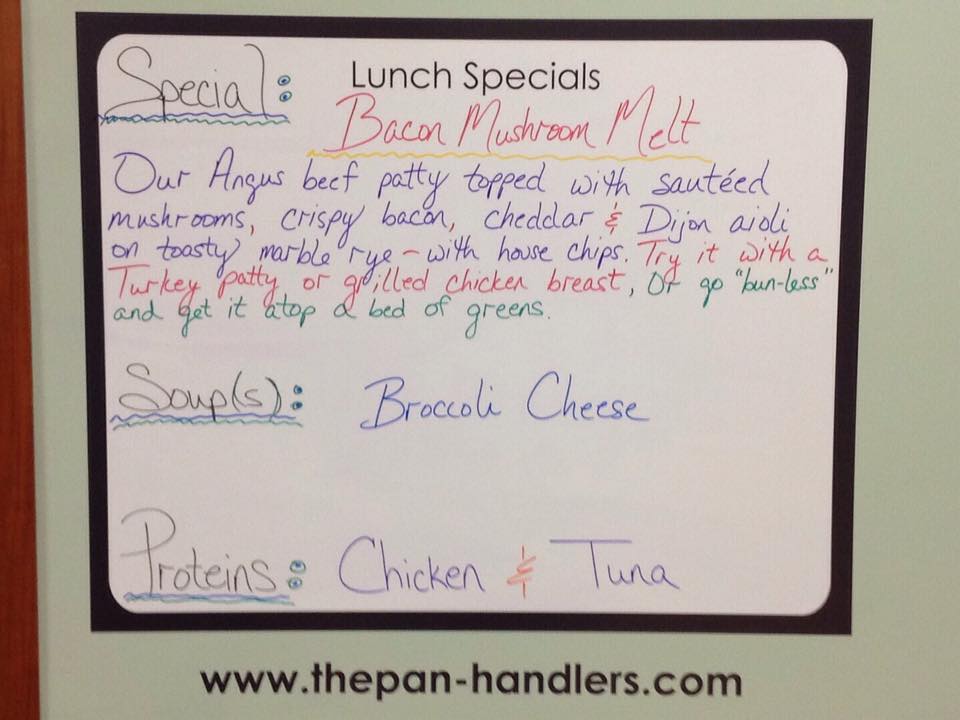 Lunch Specials
Special:
Bacon Mushroom Melt
Our Angus beef patty topped with sautéed
mushrooms, crispy bacon, cheddar & Dijon aioli
on toasty marble rye - with house chips. Try it with a
Turkey patty or grilled chicken breast, Or go "bun-less"
and get it atop a bed of greens.
Soup(s): Broccoli Cheese
Proteins: Chicken & Tuna
www.thepan-handlers.com